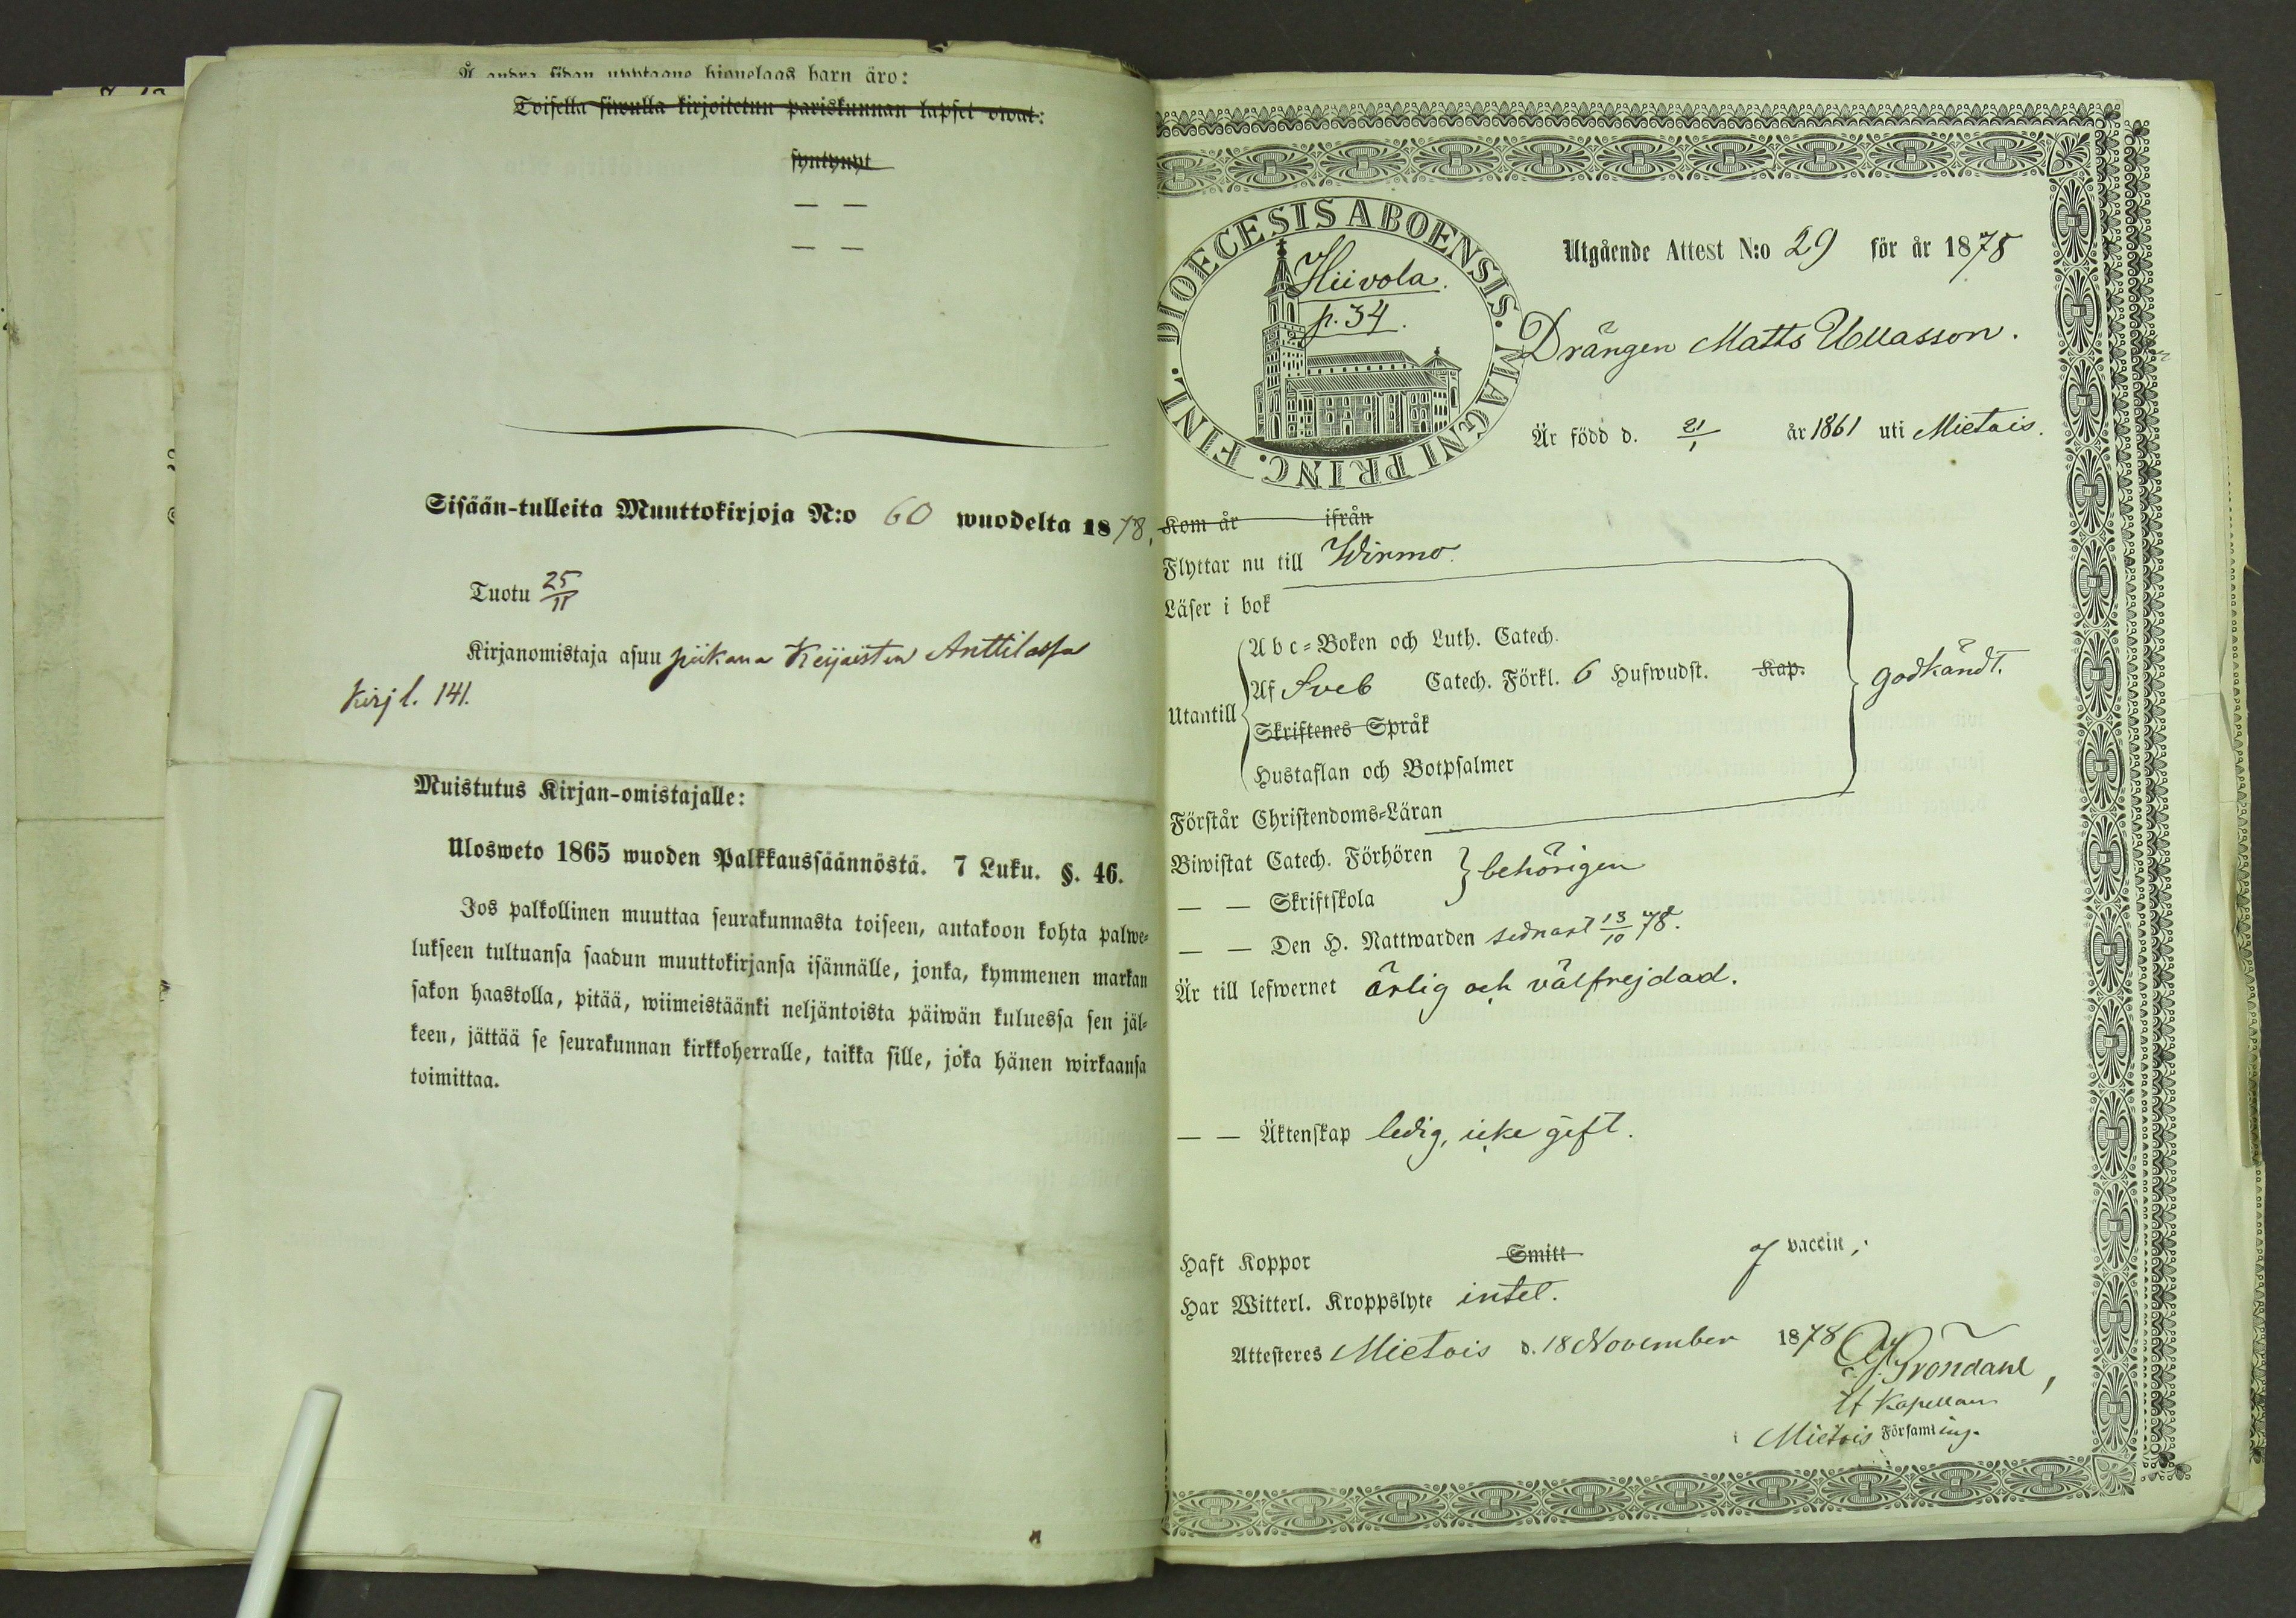 Å andra sidan upptagne hionelags barn äro:
Toisella siwulla kirjoitetun pariskunnan lapset owat:
syntynyt
— —
— —
Sisään-tulleita Muuttokirjoja N:o 60 wuodelta 1878,
Tuotu 25/11
Kirjanomistaja asuu piikana Keijaisten Anttilassa
Kirj l. 141.
Muistutus Kirjan-omistajalle:
Ulosweto 1865 wuoden Palkkaussäännöstä. 7 Luku. §. 46.
Jos palkollinen muuttaa seurakunnasta toiseen, antakoon kohta palwe-
lukseen tultuansa saadun muuttokirjansa isännälle, jonka, kymmenen markan
sakon haastolla, pitää, wiimeistäänki neljäntoista päiwän kuluessa sen jäl-
keen, jättää se seurakunnan kirkkoherralle, taikka sille, joka hänen wirkaansa
toimittaa.
DIOECESIS ABOENSIS. MAGNI PRINC. FINL.
Hiivola.
p. 34.
Utgående Attest N:o 29 för år 1878
Drängen Matts Ullasson.
Är född d. 21/1 år 1861 uti Mietois.
Kom år ifrån
Flyttar nu till Wirmo.
Läser i bok
Utantill
Abc-Boken och Luth. Catech.
Af Sveb Catech. Förkl. 6 Hufwudst. Kap.
Skriftenes Språk
Hustaflan och Botpsalmer
godkändt.
Förstår Christendoms-Läran
Biwistat Catech. Förhören
— — Skriftskola
behörigen
— — Den H. Nattwarden sednast 13/10 78.
Är till lefwernet ärlig och välfrejdad.
— — Äktenskap ledig, icke gift.
Haft Koppor Smitt vaccin,
Har Witterl. Kroppslyte intet.
Attesteras Mietois d. 18 November 1878
Gröndahl,
Kapellan
i Mietois Församling.